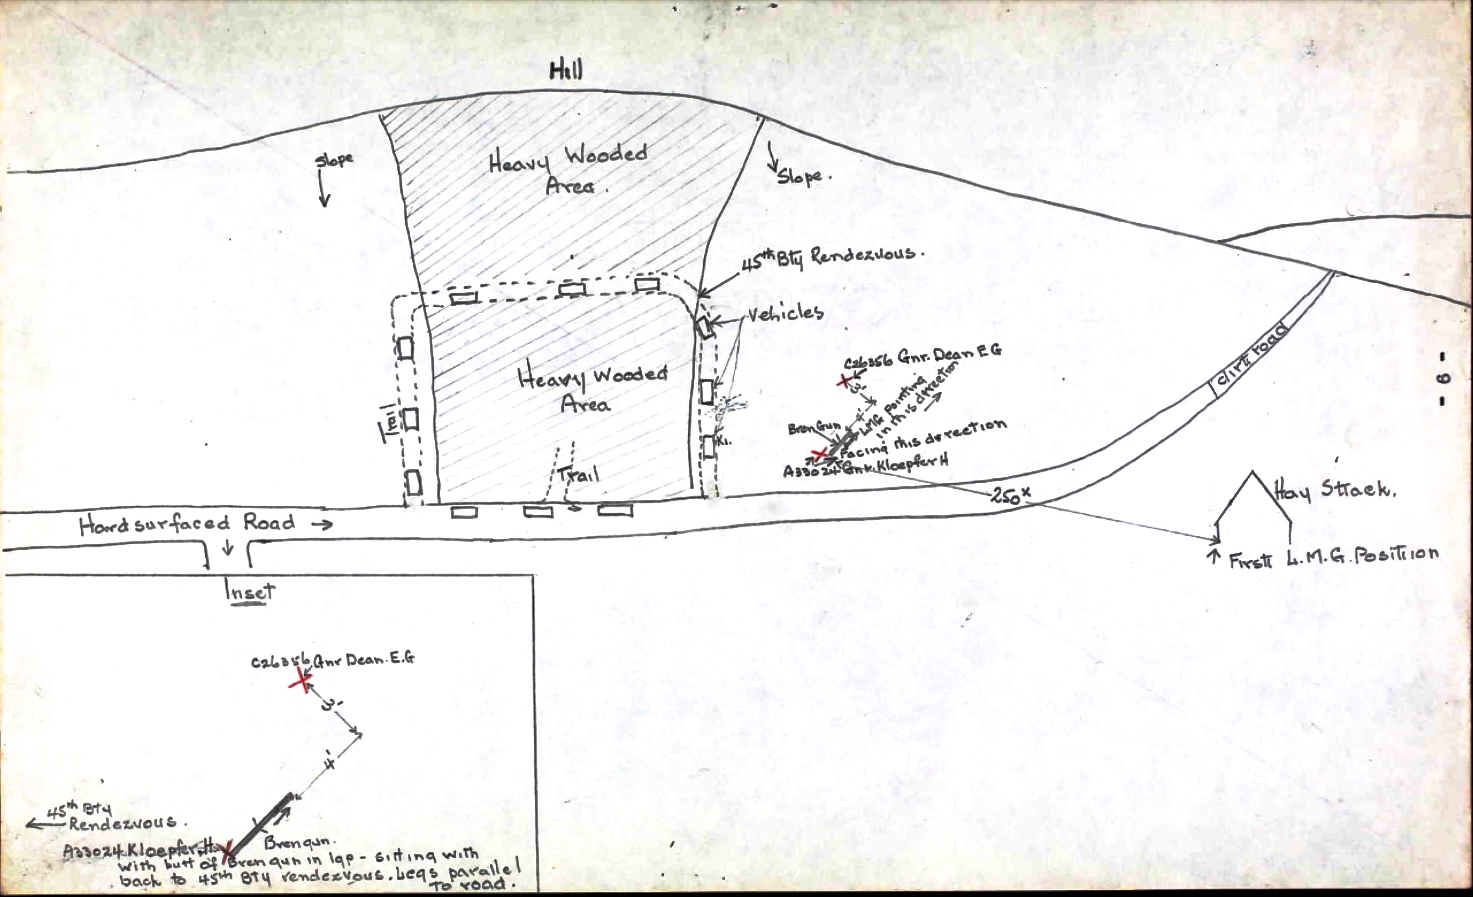 Hill
Heavy Wooded
Area.
Slope
Slope.
45th Bty Rendezvous.
Vehicles
C26356 Gnr. Dean E G
3'
LMG Pointing
in this direction
Bren Gun
Facing this derection
A33024 Gnr. Kloepfer H
Heavy Wooded
Area
Trail
K1.
Trail
dirt road
- 9 -
250x
Hay Strack.
First L.M.G. Position
Hardsurfaced Road
Inset
C26356 Gnr Dean. E.G
3'
4'
45th Bty
Rendezvous.
Bren gun.
A33024 Kloepfer, H.
with butt of Bren gun in lap - sitting with
back to 45th Bty rendezvous. Legs parallel
to road.